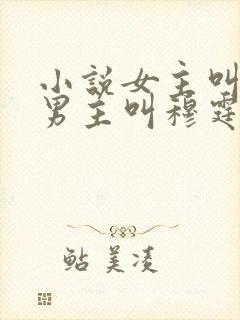 小説女主叫
男主叫穆霆
鲇美凌